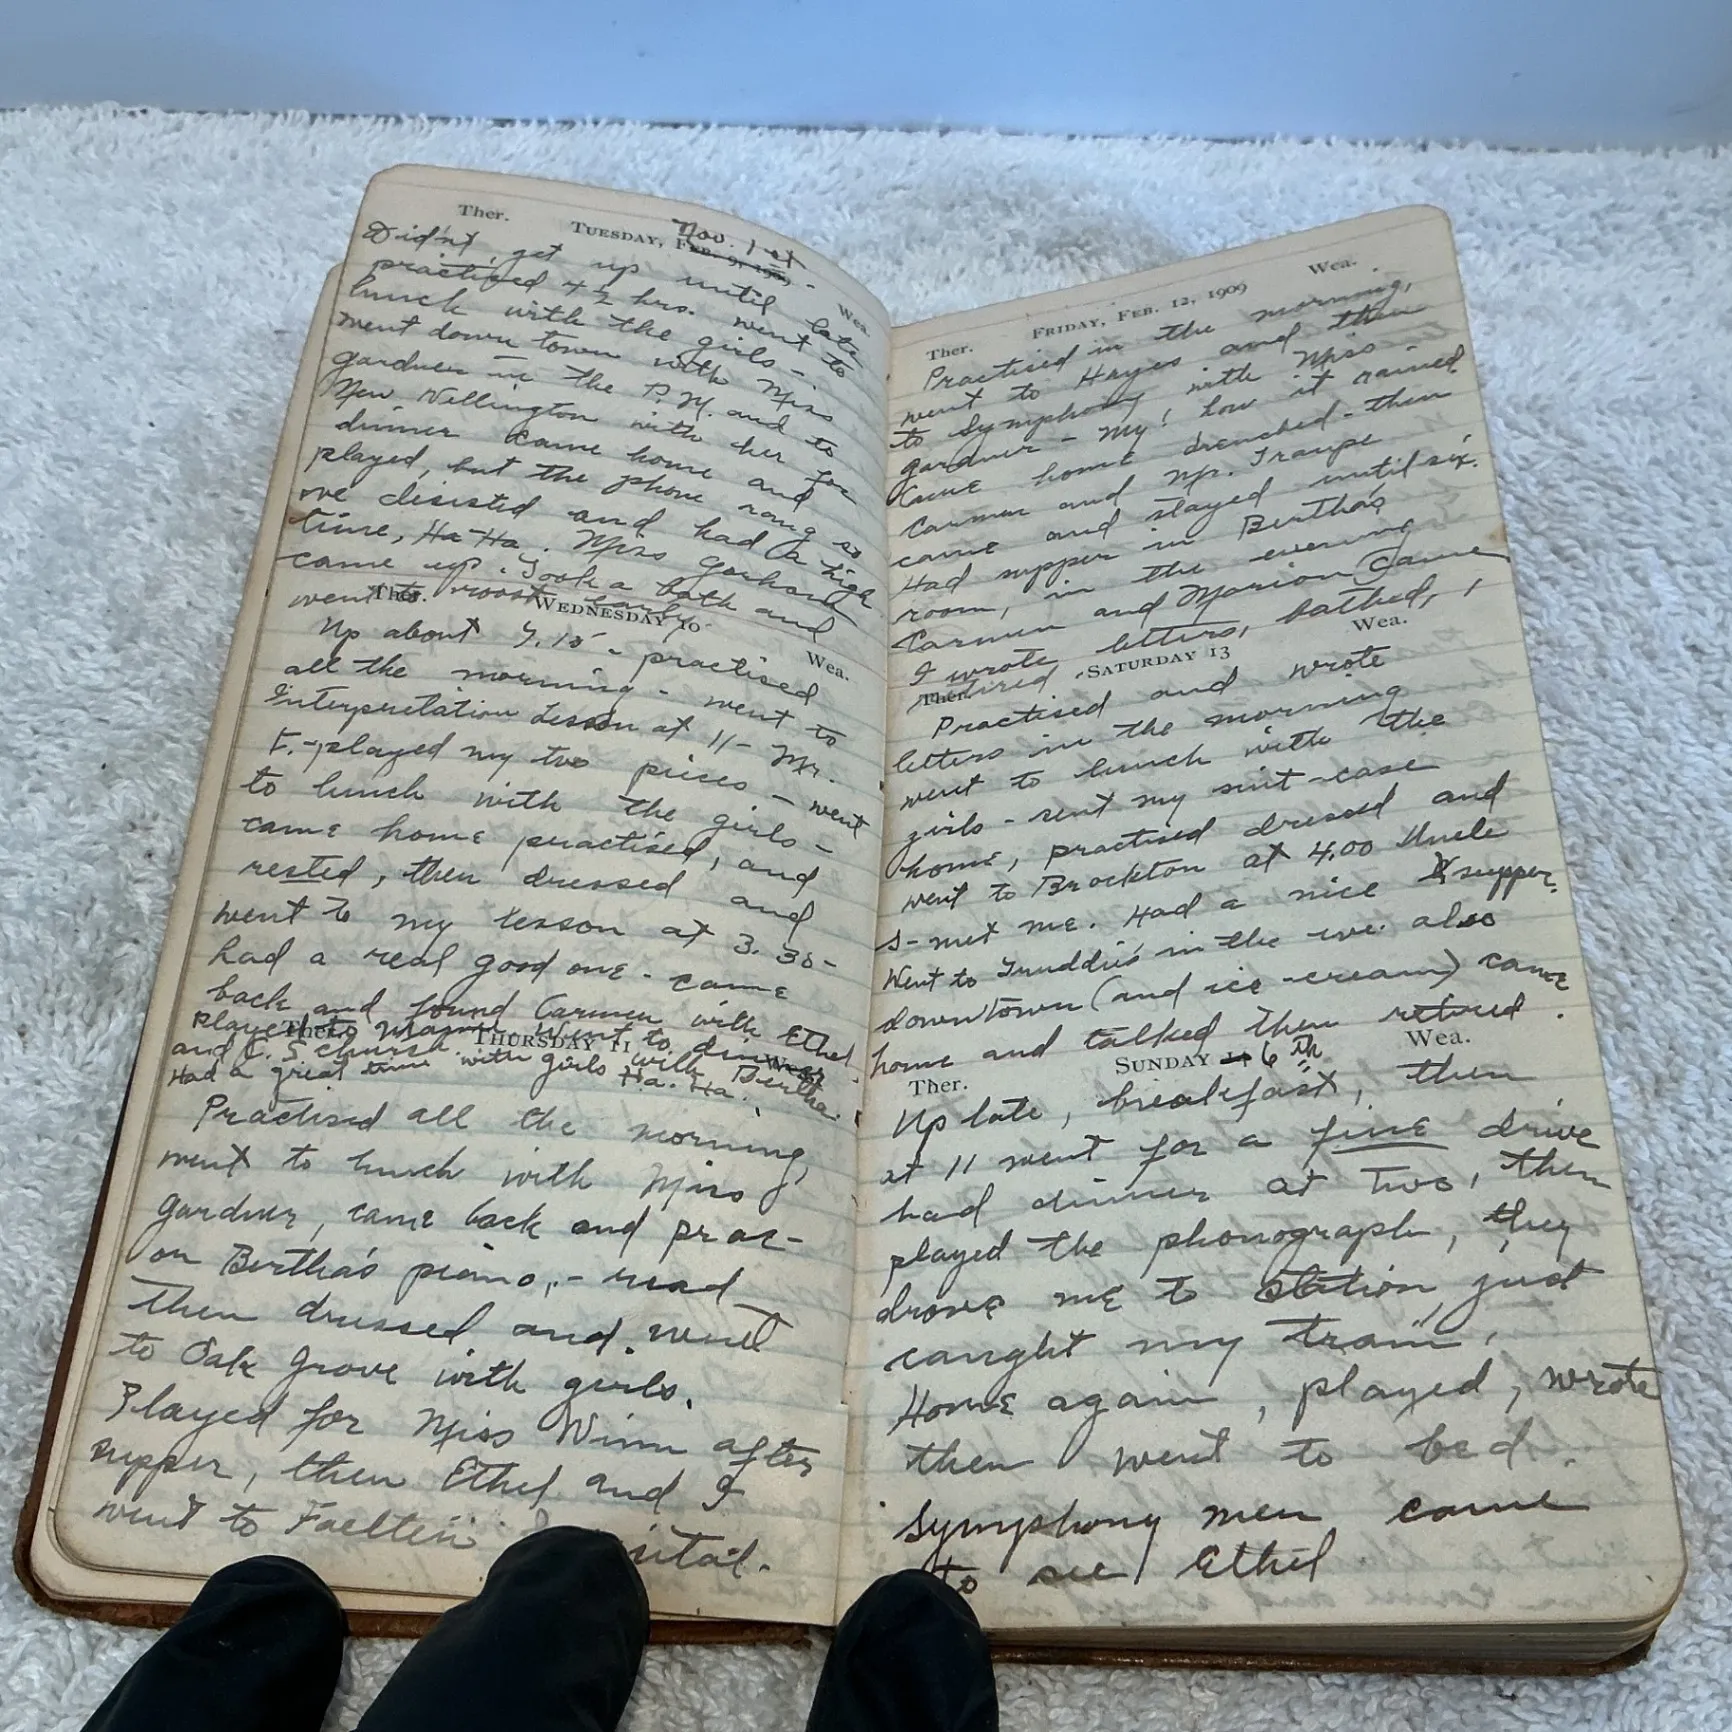 Ther. Tuesday, Feb. 9, 190 Nov. 1st Wea.
Didn't get up until late
practised 4½ hrs. went to
lunch with the girls -
went down town with Miss
Gardner in the P.M. and to
New Wellington with her for
dinner came home and
played, but the phone rang so
we desisted and had a high
time, Ha-Ha. Miss
came up. Took a bath and
went to roost early.
Ther. Wednesday 10 Wea.
Up about 7.15 - practised
all the morning - went to
Interpretation Lesson at 11 - Mr.
F. - played my two pieces - went
to lunch with the girls -
came home practised, and
rested, then dressed and
went to my lesson at 3.30 -
had a real good one - came
back and found Carmen with Ethel
played to Went to dinner
and C.S. church with Bertha.
Had a great time with girls Ha. Ha.
Ther. Thursday 11 Wea.
Practised all the morning,
went to lunch with Miss
Gardner, came back and prac-
on Bertha's piano, - read
then dressed and went
to Oak Grove with girls.
Played for Miss Winn after
supper, then Ethel and I
went to Faelten
Ther. Friday, Feb. 12, 1909 Wea.
Practised in the morning,
went to Hayes and then
to Symphony with Miss
Gardner - My! how it rained
Came home drenched - then
Carmen and Mr. Traupe
came and stayed until six.
Had supper in Bertha's
room, in the evening
Carmen and Marion Came
I wrote letters, bathed,
retired.
Ther. Saturday 13 Wea.
Practised and wrote
letters in the morning
went to lunch with the
girls - sent my suit-case
home, practised dressed and
went to Brockton at 4.00 Uncle
S- met me. Had a nice supper.
Went to Truddie's in the eve. also
downtown (and ice-cream) came
home and talked then retired.
Ther. Sunday 14 6th Wea.
Up late, breakfast, then
at 11 went for a fine drive
had dinner at two, then
played the phonograph, they
drove me to station, just
caught my train.
Home again, played, wrote
then went to bed.
Symphony men came
to see Ethel